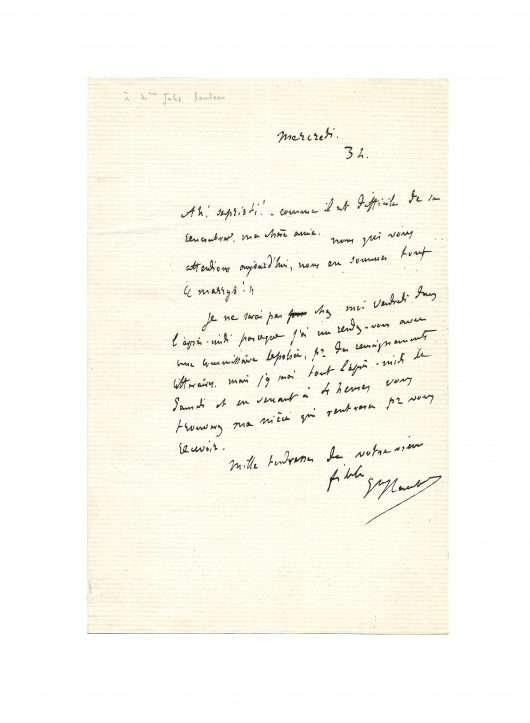 à Mme Jules
Mercredi.
3 h.
Ah! sapristi! - comme il est difficile de se
rencontrer, ma chère amie. nous qui vous
attendions aujourd'hui, nous en sommes tout
Je ne serai pas chez moi vendredi dans
l'après-midi parceque j'ai un rendez-vous avec
une commissaire de police, pr des renseignements
littéraires. mais j'y serai tout l'après-midi le
Samedi et en venant à 4 heures vous
trouverez ma nièce qui rentrera pr vous
recevoir.
Mille tendresses de votre vieux
fidèle
Gve Flaubert